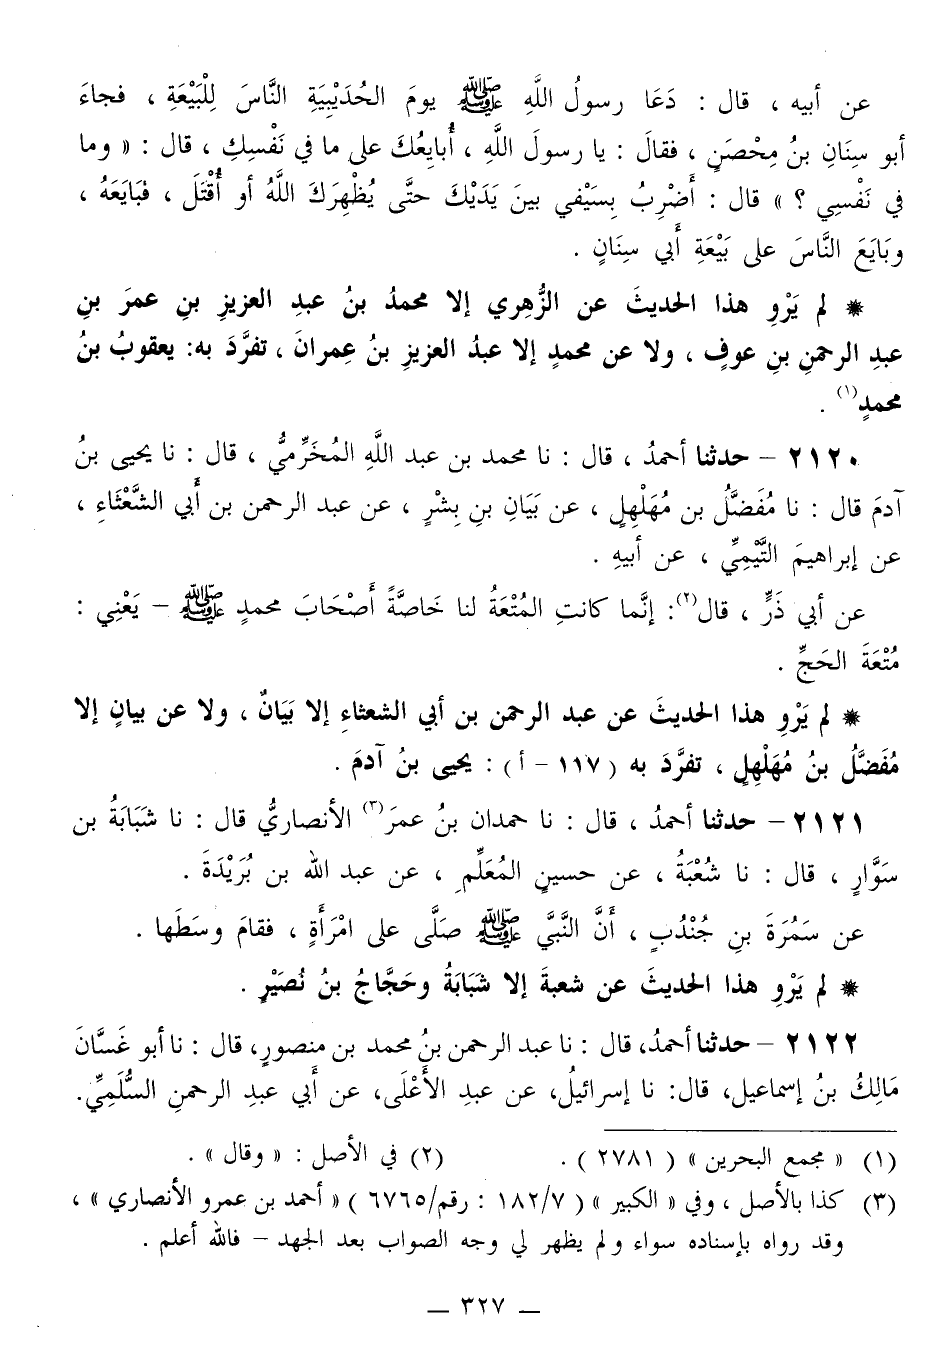 عن أبيه ، قال : دَعَا رسولُ اللَّهِ ﷺ يومَ الحُدَيْبِيَةِ النَّاسَ لِلْبَيْعَةِ ، فجاءَ
أبو سِنَانِ بنُ مِحْصَنٍ ، فقالَ : يا رسولَ اللهِ ، أُبايِعُكَ على ما في نَفْسِكِ ، قال : « وما
في نَفْسِي ؟ » قال : أَضْرِبُ بِسَيْفي بينَ يَدَيْكَ حتَّى يُظْهِرَكَ اللَّهُ أو أُقْتَلَ ، فَبَايَعَهُ ،
وبَايَعَ النَّاسَ على بَيْعَةِ أَبي سِنَانٍ .
* لم يَرْوِ هذا الحديثَ عن الزُّهرِي إلا محمدُ بنُ عبدِ العزيزِ بنِ عمرَ بنِ
عبدِ الرحمنِ بنِ عوفٍ ، ولا عن محمدٍ إلا عبدُ العزيزِ بنُ عِمرانَ ، تفرَّدَ به: يعقوبُ بنُ
محمدٍ(١) .
٢١٢٠ – حدثنا أحمدُ ، قال : نا محمد بن عبد اللَّهِ المُخَرِّميُّ ، قال : نا يحيى بنُ
آدمَ قال : نا مُفَضَّلُ بن مُهَلْهِلٍ ، عن بَيَانِ بنِ بِشْرٍ ، عن عبد الرحمن بن أَبي الشَّعْثَاءِ ،
عن إبراهيمَ التَّيْمِيِّ ، عن أبيهِ .
عن أبي ذَرٍّ ، قال(٢): إنَّما كانتِ المُتْعَةُ لنا خَاصَّةً أَصْحَابَ محمدٍ ﷺ – يَعْنِي :
مُتْعَةَ الحَجِّ .
* لم يَرْوِ هذا الحديثَ عن عبد الرحمن بن أبي الشعثاءِ إلا بَيَانٌ ، ولا عن بيانٍ إلا
مُفَضَّلُ بنُ مُهَلْهِلٍ ، تفرَّدَ به ( ١١٧ – أ ) : يحيى بنُ آدمَ .
٢١٢١ – حدثنا أحمدُ ، قال : نا حمدان بنُ عمرَ(٣) الأنصاريُّ قال : نا شَبَابَةُ بن
سَوَّارٍ ، قال : نا شُعْبَةُ ، عن حسينٍ المُعَلِّمِ ، عن عبد الله بن بُرَيْدَةَ .
عن سَمُرَةَ بنِ جُنْدُبٍ ، أَنَّ النَّبيَّ ﷺ صَلَّى على امْرَأَةٍ ، فقامَ وسَطَها .
* لم يَرْوِ هذا الحديثَ عن شعبةَ إلا شَبَابَةُ وحَجَّاجُ بنُ نُصَيْرٍ .
٢١٢٢ – حدثنا أحمدُ، قال : نا عبد الرحمن بنُ محمد بن منصورٍ، قال : نا أبو غَسَّانَ
مَالِكُ بنُ إسماعيل، قال: نا إسرائيلُ، عن عبدِ الأَعْلَى، عن أَبي عبدِ الرحمنِ السُّلَمِيِّ.
(١) « مجمع البحرين » ( ٢٧٨١ ) . (٢) في الأصل : « وقال » .
(٣) كذا بالأصل ، وفي « الكبير » ( ١٨٢/٧ : رقم/٦٧٦٥ ) « أحمد بن عمرو الأنصاري » ،
وقد رواه بإسناده سواء ولم يظهر لي وجه الصواب بعد الجهد – فالله أعلم .
– ٣٢٧ –